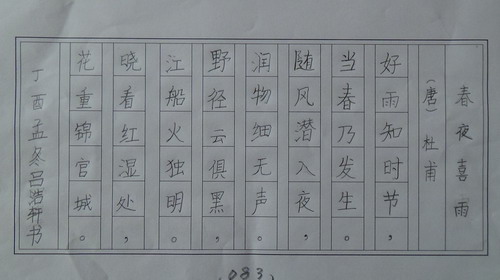 春夜喜雨
（唐）杜甫
好雨知时节，
当春乃发生。
随风潜入夜，
润物细无声。
野径云俱黑，
江船火独明。
晓看红湿处，
花重锦官城。
丁酉孟冬吕浩轩书
083.